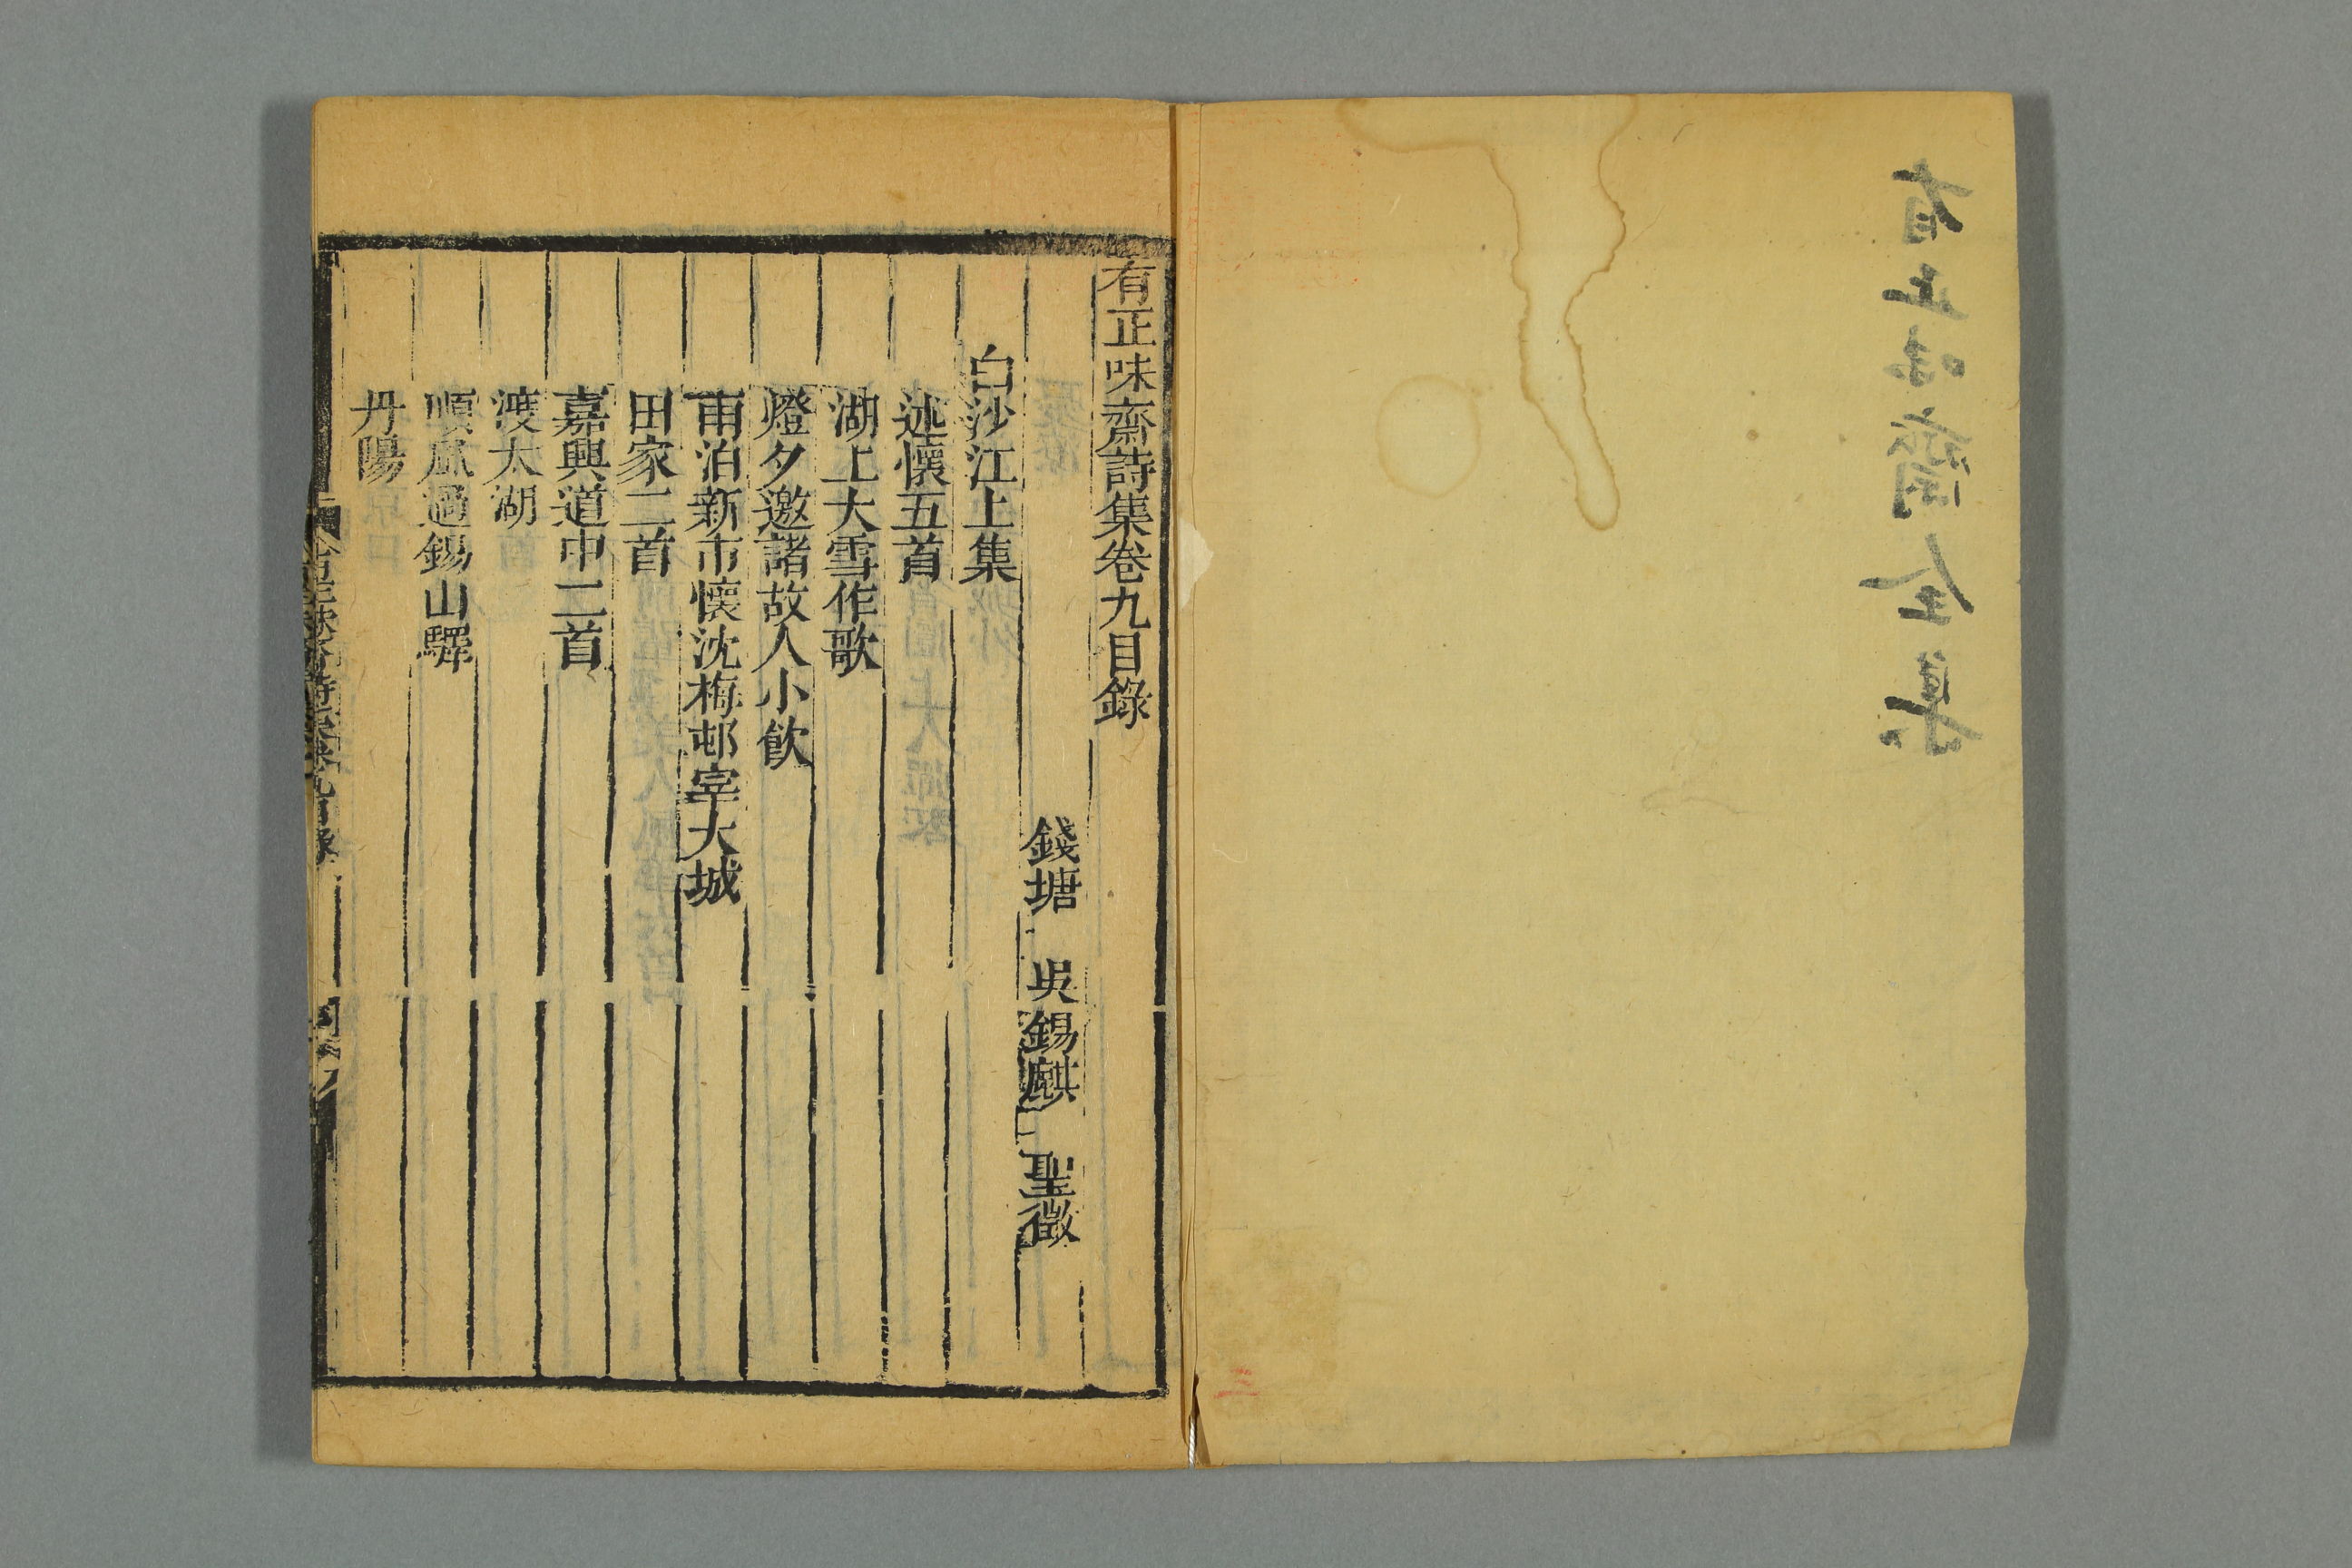 有正味齋全集
有正味齋詩集卷九目錄
錢塘 吳錫麒 聖徵
白沙江上集
述懷五首
湖上大雪作歌
燈夕邀諸故人小飲
雨泊新市懷沈梅邨宰大城
田家二首
嘉興道中二首
渡太湖
順風過錫山驛
丹陽